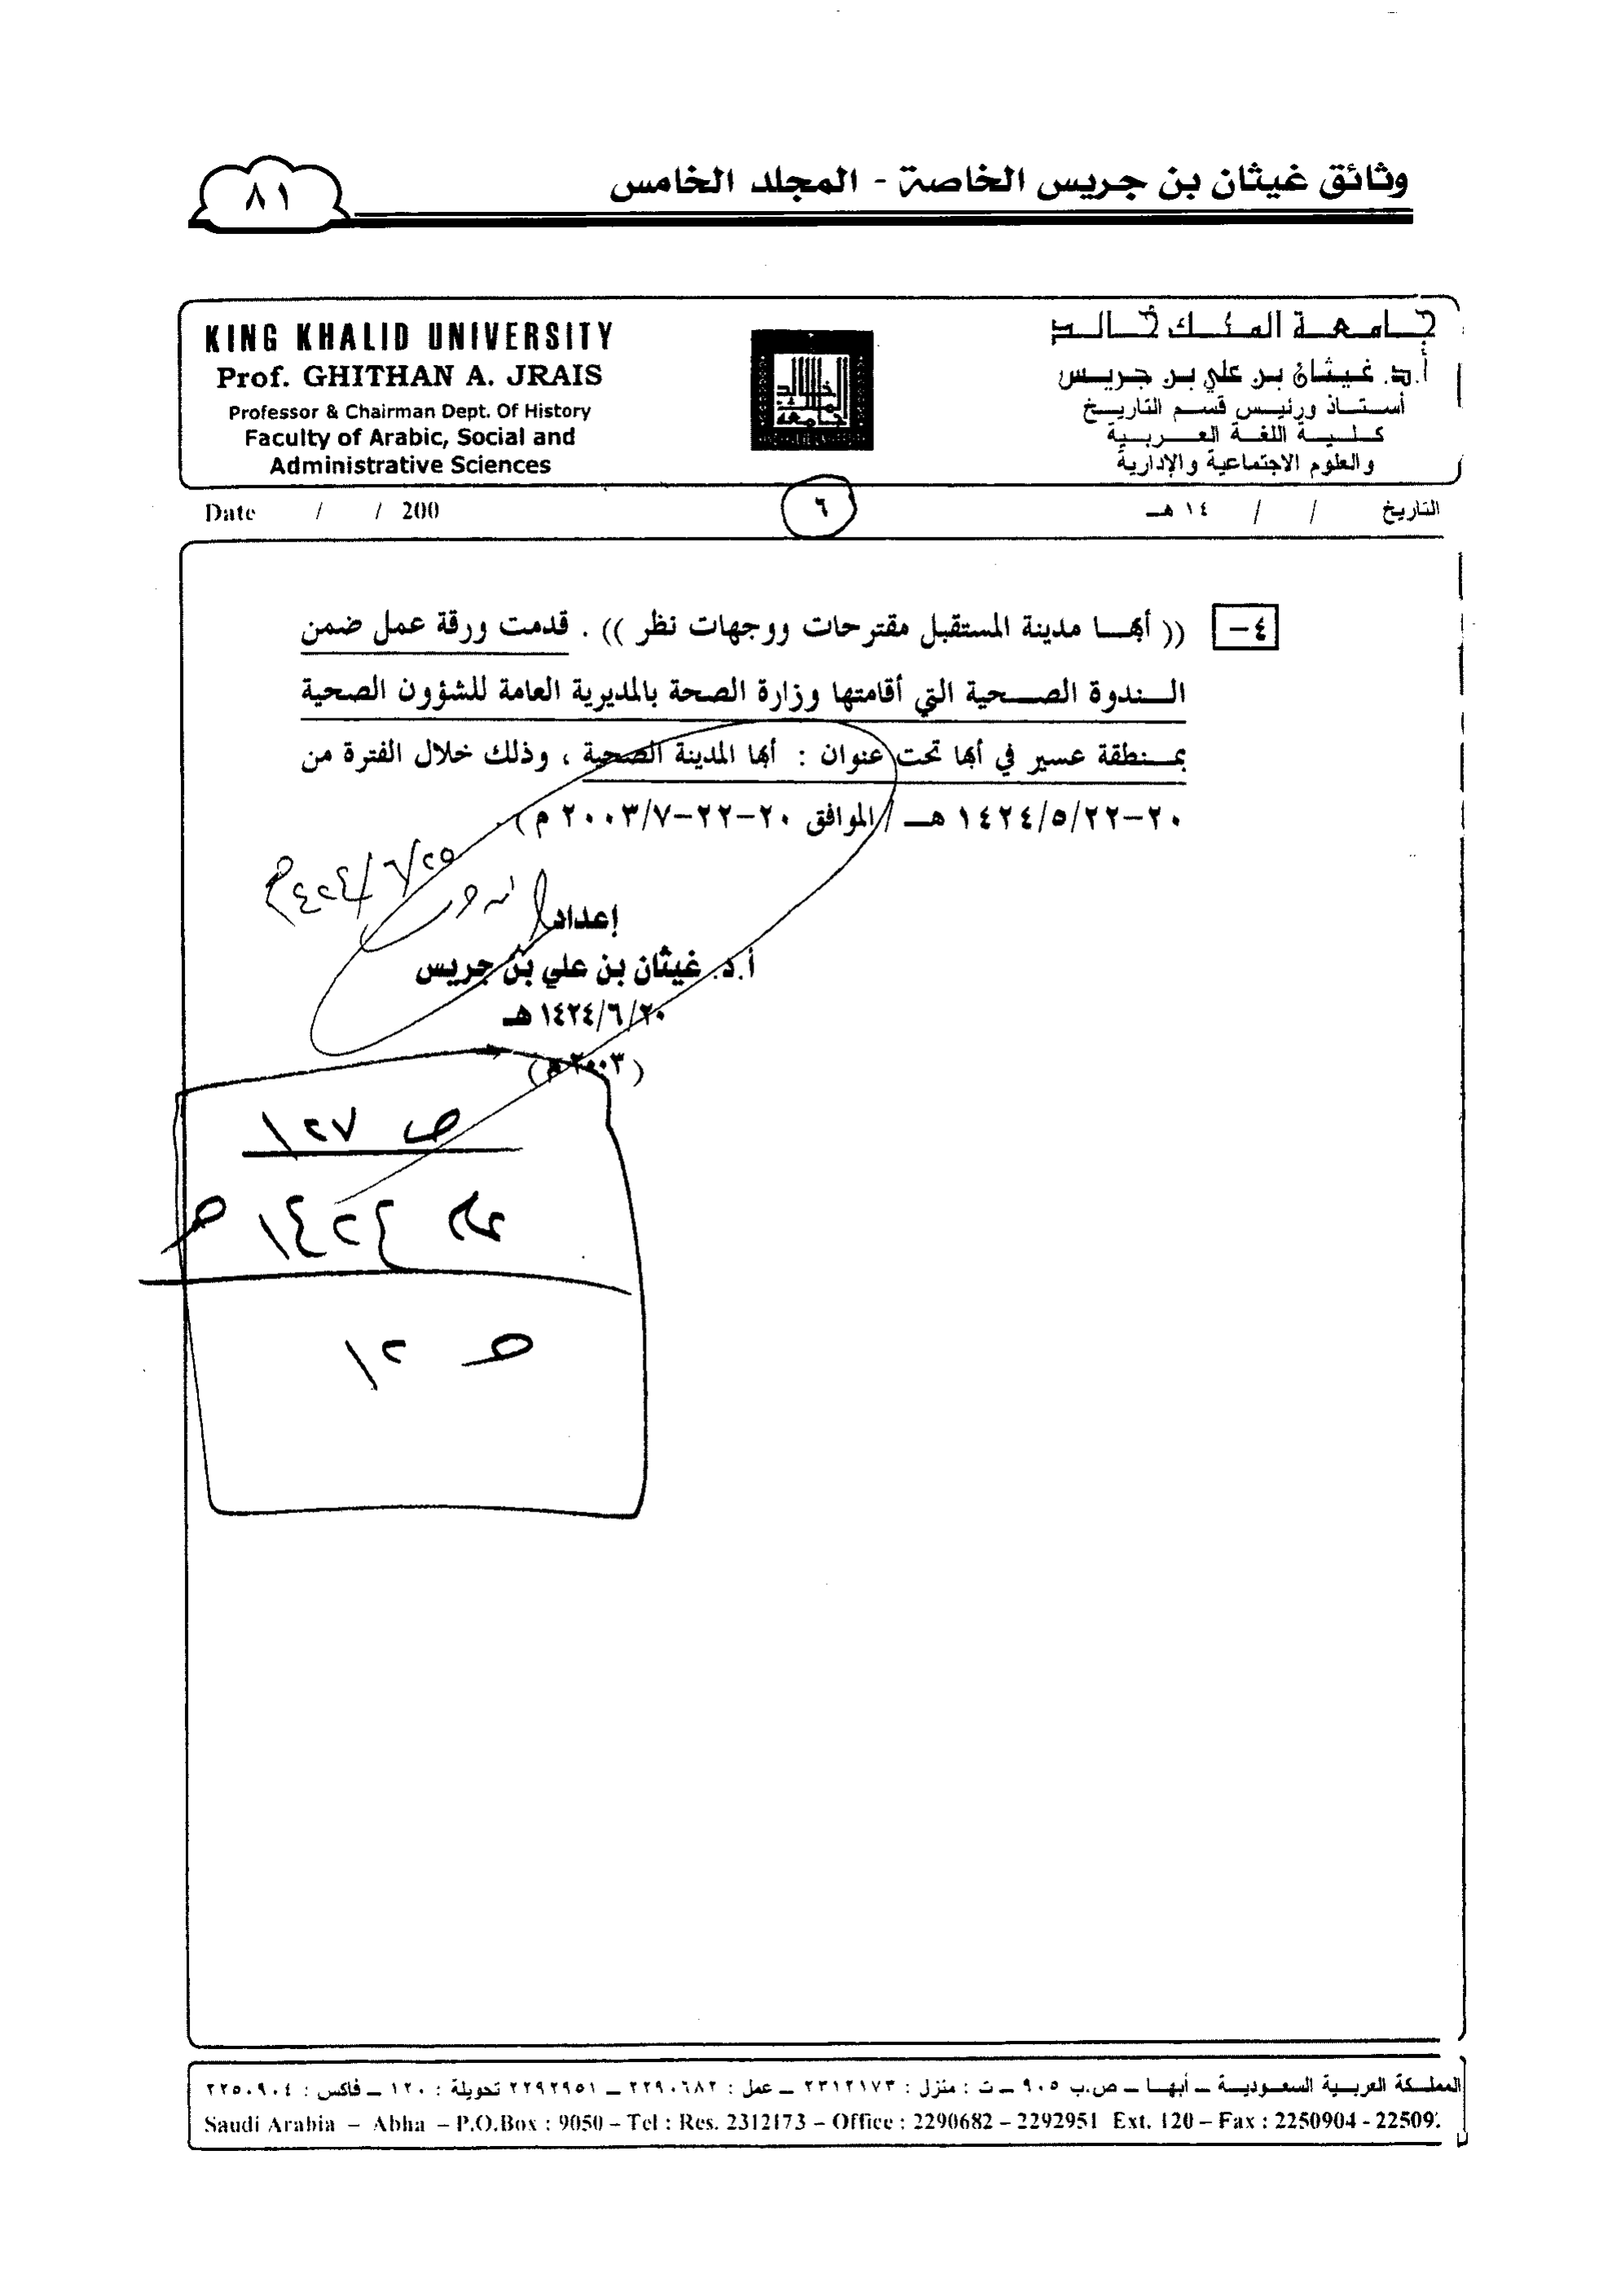 وثائق غيثان بن جريس الخاصة - المجلد الخامس
٨١
KING KHALID UNIVERSITY
Prof. GHITHAN A. JRAIS
Professor & Chairman Dept. Of History
Faculty of Arabic, Social and
Administrative Sciences
جامعة الملك خالد
أ.د. غيثان بن علي بن جريس
أستاذ ورئيس قسم التاريخ
كلية اللغة العربية
والعلوم الاجتماعية والإدارية
Date / / 200
٦
التاريخ / / ١٤ هـ
٤- (( أبها مدينة المستقبل مقترحات ووجهات نظر )) . قدمت ورقة عمل ضمن
الندوة الصحية التي أقامتها وزارة الصحة بالمديرية العامة للشؤون الصحية
بمنطقة عسير في أبها تحت عنوان : أبها المدينة الصحية ، وذلك خلال الفترة من
٢٠-٢٢/٥/١٤٢٤ هـ (الموافق ٢٠-٢٢-٢٠٠٣/٧ م) .
إعداد
أ.د. غيثان بن علي بن جريس
١٤٢٤/٦/٢٠ هـ
(٢٠٠٣ م)
ص ١٢٧
عام ١٤٢٤ هـ
ص ١٢
المملكة العربية السعودية – أبها – ص.ب ٩٠٥ – ت : منزل : ٢٣١٢١٧٣ – عمل : ٢٢٩٠٦٨٢ – ٢٢٩٢٩٥١ تحويلة : ١٢٠ – فاكس : ٢٢٥٠٩٠٤
Saudi Arabia – Abha – P.O.Box : 9050 – Tel : Res. 2312173 – Office : 2290682 – 2292951 Ext. 120 – Fax : 2250904 - 22509